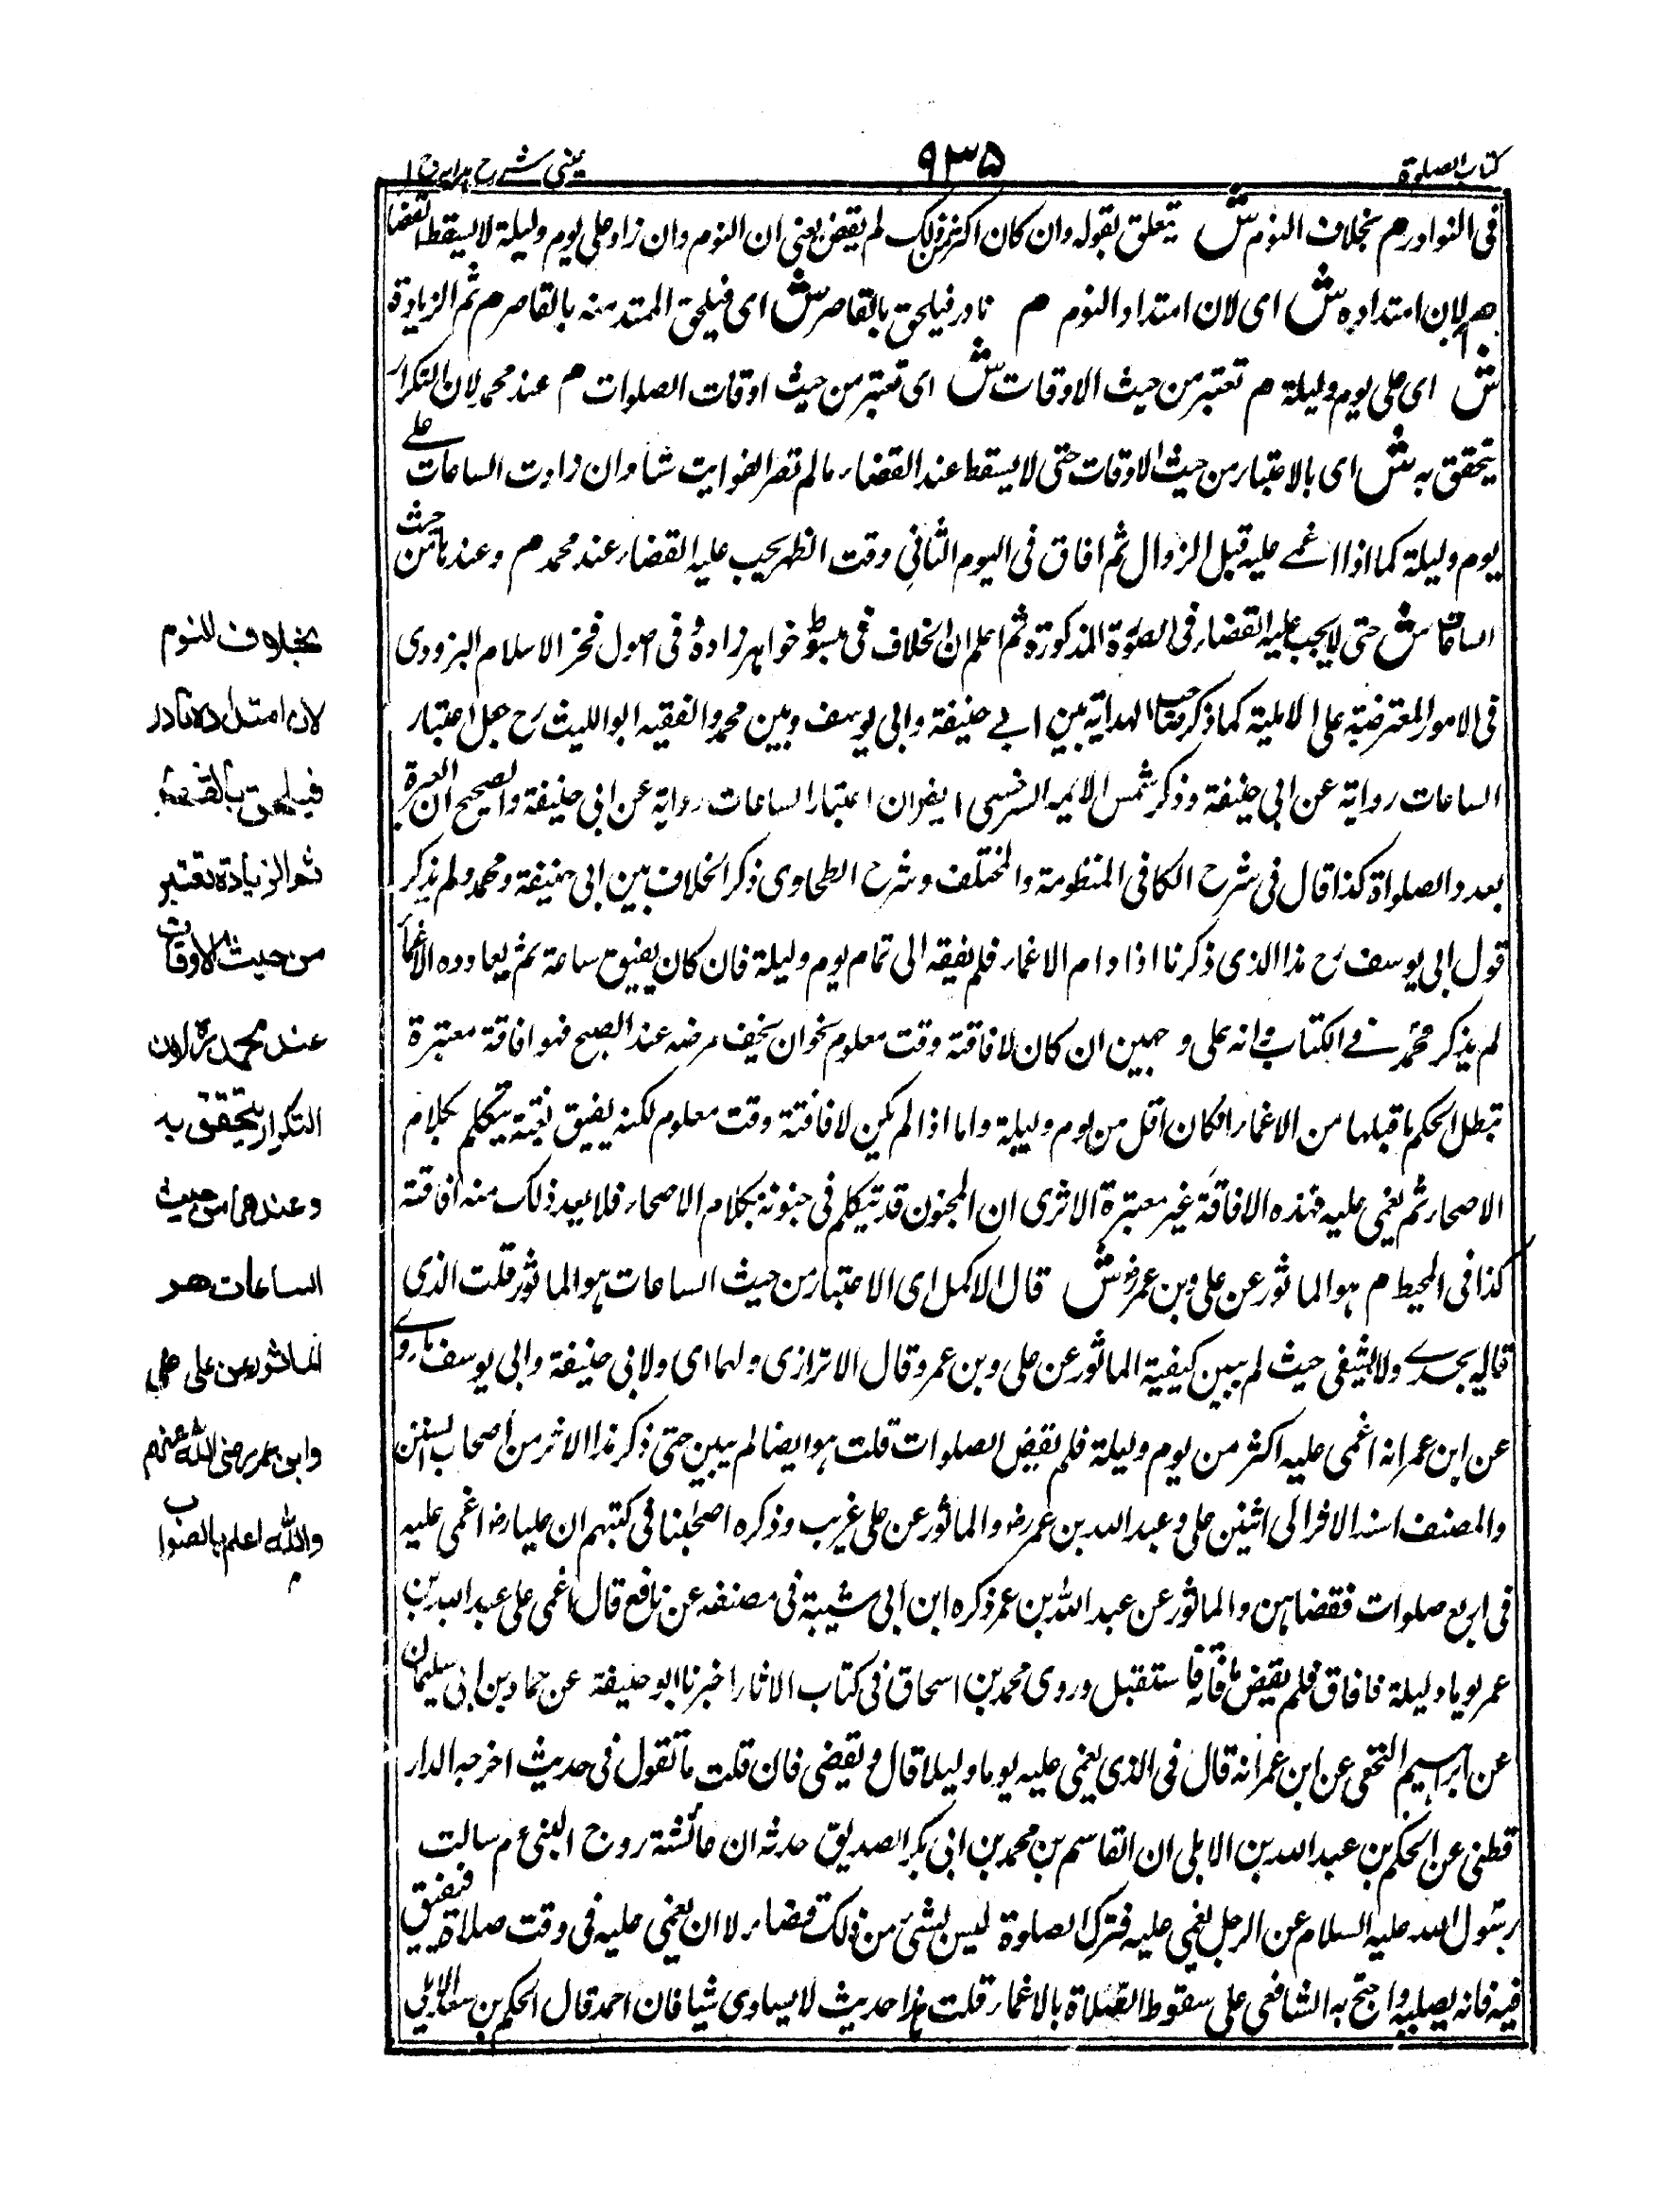 كتاب الصلوة
٩٣٥
عینی شرح هدایه ج ١
فی النوادر م بخلاف النوم ش يتعلق بقوله وان كان اكثر من ذلك لم يقض يعنی ان النوم وان زاد علی يوم وليلة لا يسقط القضا
م لان امتداده ش ای لان امتداد النوم م نادر فيلحق بالقاصر ش ای فيلحق الممتد منه بالقاصر م ثم الزيادة
ش ای علی يوم وليلة م تعتبر من حيث الاوقات ش ای تعتبر من حيث اوقات الصلوات م عند محمد لان التكرار
يتحقق به ش ای بالاعتبار من حيث الاوقات حتی لا يسقط عند القضاء مالم تصر الفوايت ستا وان زادت الساعات علے
يوم وليلة كما اذا اغمے عليه قبل الزوال ثم افاق فی اليوم الثانی وقت الظهر يجب عليه القضاء عند محمد م وعندهما من حيث
الساعات ش حتی لا يجب عليه القضاء فی الصورة المذكورة ثم اعلم ان الخلاف فی مبسوط خواهر زاده وفی اصول فخر الاسلام البزدوی
فی الامور المعترضة علی الاهلية كما ذكر صاحب الهداية بين ابے حنيفة وابی يوسف وبين محمد والفقيه ابو الليث رح جعل اعتبار
الساعات رواية عن ابی حنيفة وذكر شمس الائمه السرخسی ايضا ان اعتبار الساعات رواية عن ابی حنيفة والصحيح ان العبرة
بعدد الصلواة كذا قال فی شرح الكافی المنظومة والمختلف وشرح الطحاوی ذكر الخلاف بين ابی حنيفة ومحمد ولم يذكر
قول ابی يوسف رح هذا الذی ذكرنا اذا دام الاغماء فلم يفقه الی تمام يوم وليلة فان كان يفيق ساعة ثم يعاوده الاغماء
لم يذكر محمد فے الكتاب وانه علی وجهين ان كان لافاقته وقت معلوم نحو ان يخف مرضه عند الصبح فهو افاقة معتبرة
تبطل الحكم ما قبلها من الاغماء اذا كان اقل من يوم وليلة واما اذا لم يكن لافاقتة وقت معلوم لكنه يفيق بغتة يتكلم بكلام
الاصحاء ثم يغمی عليه فهذه الافاقة غير معتبرة الا تری ان المجنون قد يتكلم فی جنونه بكلام الاصحاء فلا يعد ذلك منه افاقته
كذا فی المحيط م هو الماثور عن علی وبن عمر رض ش قال الاكمل ای الاعتبار من حيث الساعات هو الماثور قلت الذی
قاله يجدے ولا يشفی حيث لم يبين كيفية الماثور عن علی وبن عمر وقال الاترازی ولهما ای ولابی حنيفة وابی يوسف ما روے
عن ابن عمر انه اغمی عليه اكثر من يوم وليلة فلم يقض الصلوات قلت هو ايضا لم يبين حتی ذكر هذا الاثر من اصحاب السنن
والمصنف اسند الاثر الی اثنين علی وعبد الله بن عمر رض والماثور عن علی غريب وذكره اصحابنا فی كتبهم ان عليا رض اغمی عليه
فی اربع صلوات فقضاهن والماثور عن عبد الله بن عمر ذكره ابن ابی شيبة فی مصنفه عن نافع قال اغمی علی عبد الله بن
عمر يوما وليلة فافاق فلم يقض ما فاته واستقبل وروی محمد بن اسحاق فی كتاب الاثار اخبرنا ابو حنيفة عن حماد بن ابی سليمان
عن ابراهيم النخعی عن ابن عمر انه قال فی الذی يغمی عليه يوما وليلا قال ويقضی فان قلت ما تقول فی حديث اخرجه الدار
قطنی عن الحكم بن عبد الله بن الابلی ان القاسم بن محمد بن ابی بكر الصديق حدثه ان عائشة زوج النبی ع م سالت
رسول الله عليه السلام عن الرجل يغمی عليه فترك الصلوة ليس بشئ من ذلك قضاء الا ان يغمی عليه فی وقت صلاة فيفيق
فيه فانه يصليه واحتج به الشافعی علی سقوط الصلاة بالاغماء قلت هذا حديث لا يساوی شيا فان احمد قال الحكم بن سعد الابلی
بخلاف النوم
لان امتداده نادر
فيلحق بالقاصر
ثم الزيادة تعتبر
من حيث الاوقات
عند محمد رح لان
التكرار يتحقق به
وعندهما من حيث
الساعات هو
الماثور عن علی
وابن عمر رضی الله عنهم
والله اعلم بالصواب